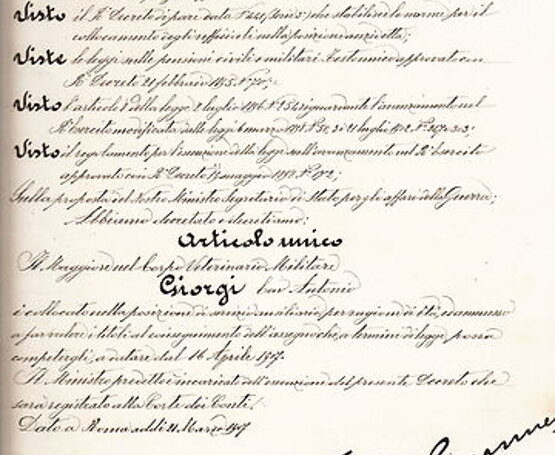 Visto il R° Decreto di pari data N° 441 (Serie 3ª) che stabilisce le norme per il
collocamento degli ufficiali nella posizione anzidetta;
Viste le leggi sulle pensioni civili e militari Testo unico approvato con
R° Decreto 21 febbraio 1895 N° 70;
Visto l'articolo 8 della legge 2 luglio 1896 N° 254 riguardante l'avanzamento nel
R° Esercito modificata dalle leggi 6 marzo 1898 N° 50, 3 e 21 luglio 1902, N° 247 e 303;
Visto il regolamento per l'esecuzione della legge sull'avanzamento nel R° Esercito
approvato con R° Decreto maggio;
Sulla proposta del Nostro Ministro Segretario di Stato per gli affari della Guerra;
Abbiamo decretato e decretiamo:
Articolo unico
Il Maggiore nel Corpo Veterinario Militare
Giorgi cav Antonio
è collocato nella posizione di servizio ausiliario, per ragioni di età, ed ammesso
a far valere i titoli al conseguimento dell'assegno che, a termini di legge, possa
competergli, a datare dal 16 Aprile 1907.
Il Ministro predetto è incaricato dell'esecuzione del presente Decreto che
sarà registrato alla Corte dei Conti.
Dato a Roma addì 21 Marzo 1907